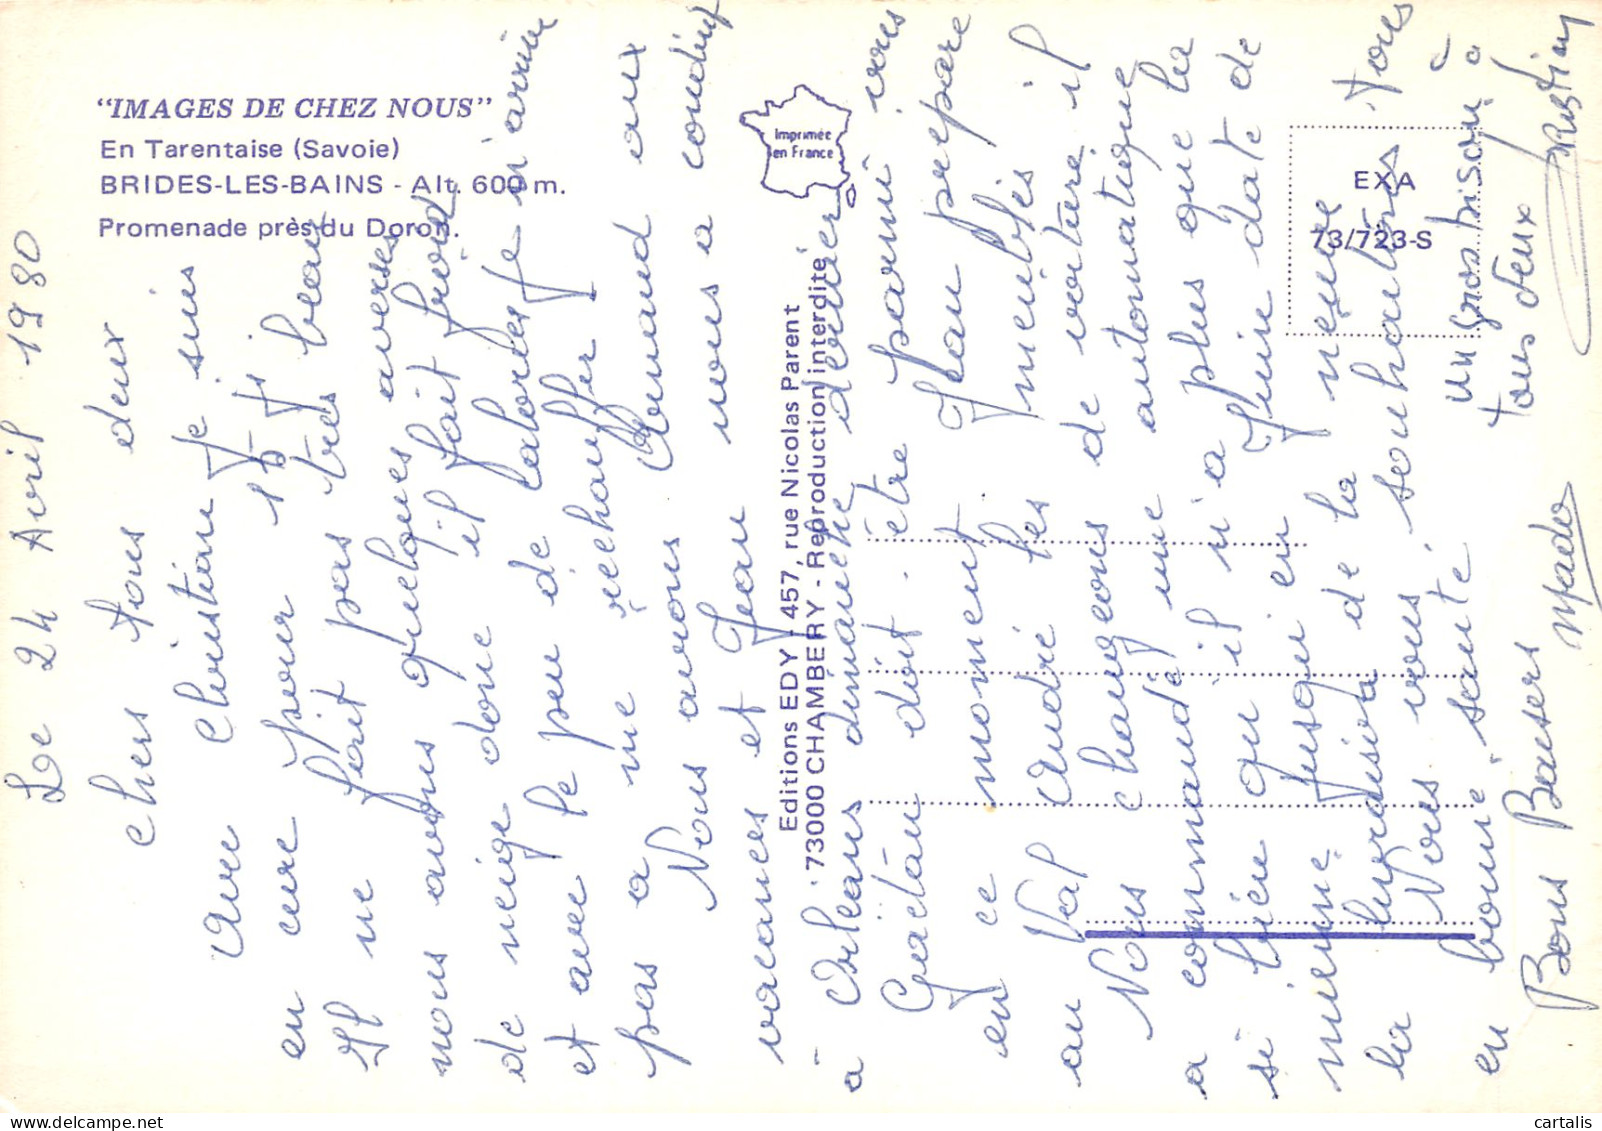 "IMAGES DE CHEZ NOUS"
En Tarentaise (Savoie)
BRIDES-LES-BAINS - Alt. 600 m.
Promenade près du Doron.
Imprimée
en France
EXA
73/723-S
Editions EDY - 457, rue Nicolas Parent
73000 CHAMBERY - Reproduction interdite
Le 24 Avril 1980
Chers tous deux
Avec Christian je suis
en cure pour 15 Ji
Il ne fait pas très beau
nous avons quelques averses
de neige donc il fait froid
et avec le peu de calories je n'arrive
pas a me réchauffer
Nous avons Armand aux
vacances et Jean nous a conduit
à Orléans dimanche dernier
Gaëtan doit être parmi vous
en ce moment Jean prepare
au Val André les meublés
Nous changeons de voiture il
a commandé une automatique
si bien qu'il n'a plus que la
mienne jusqu'en Juin date de
la livraison de la neuve
Nous vous souhaitons Tous
en bonne santé.
Bons Baisers
Mado
un gros bisou à
tous deux
Christian
cartalis